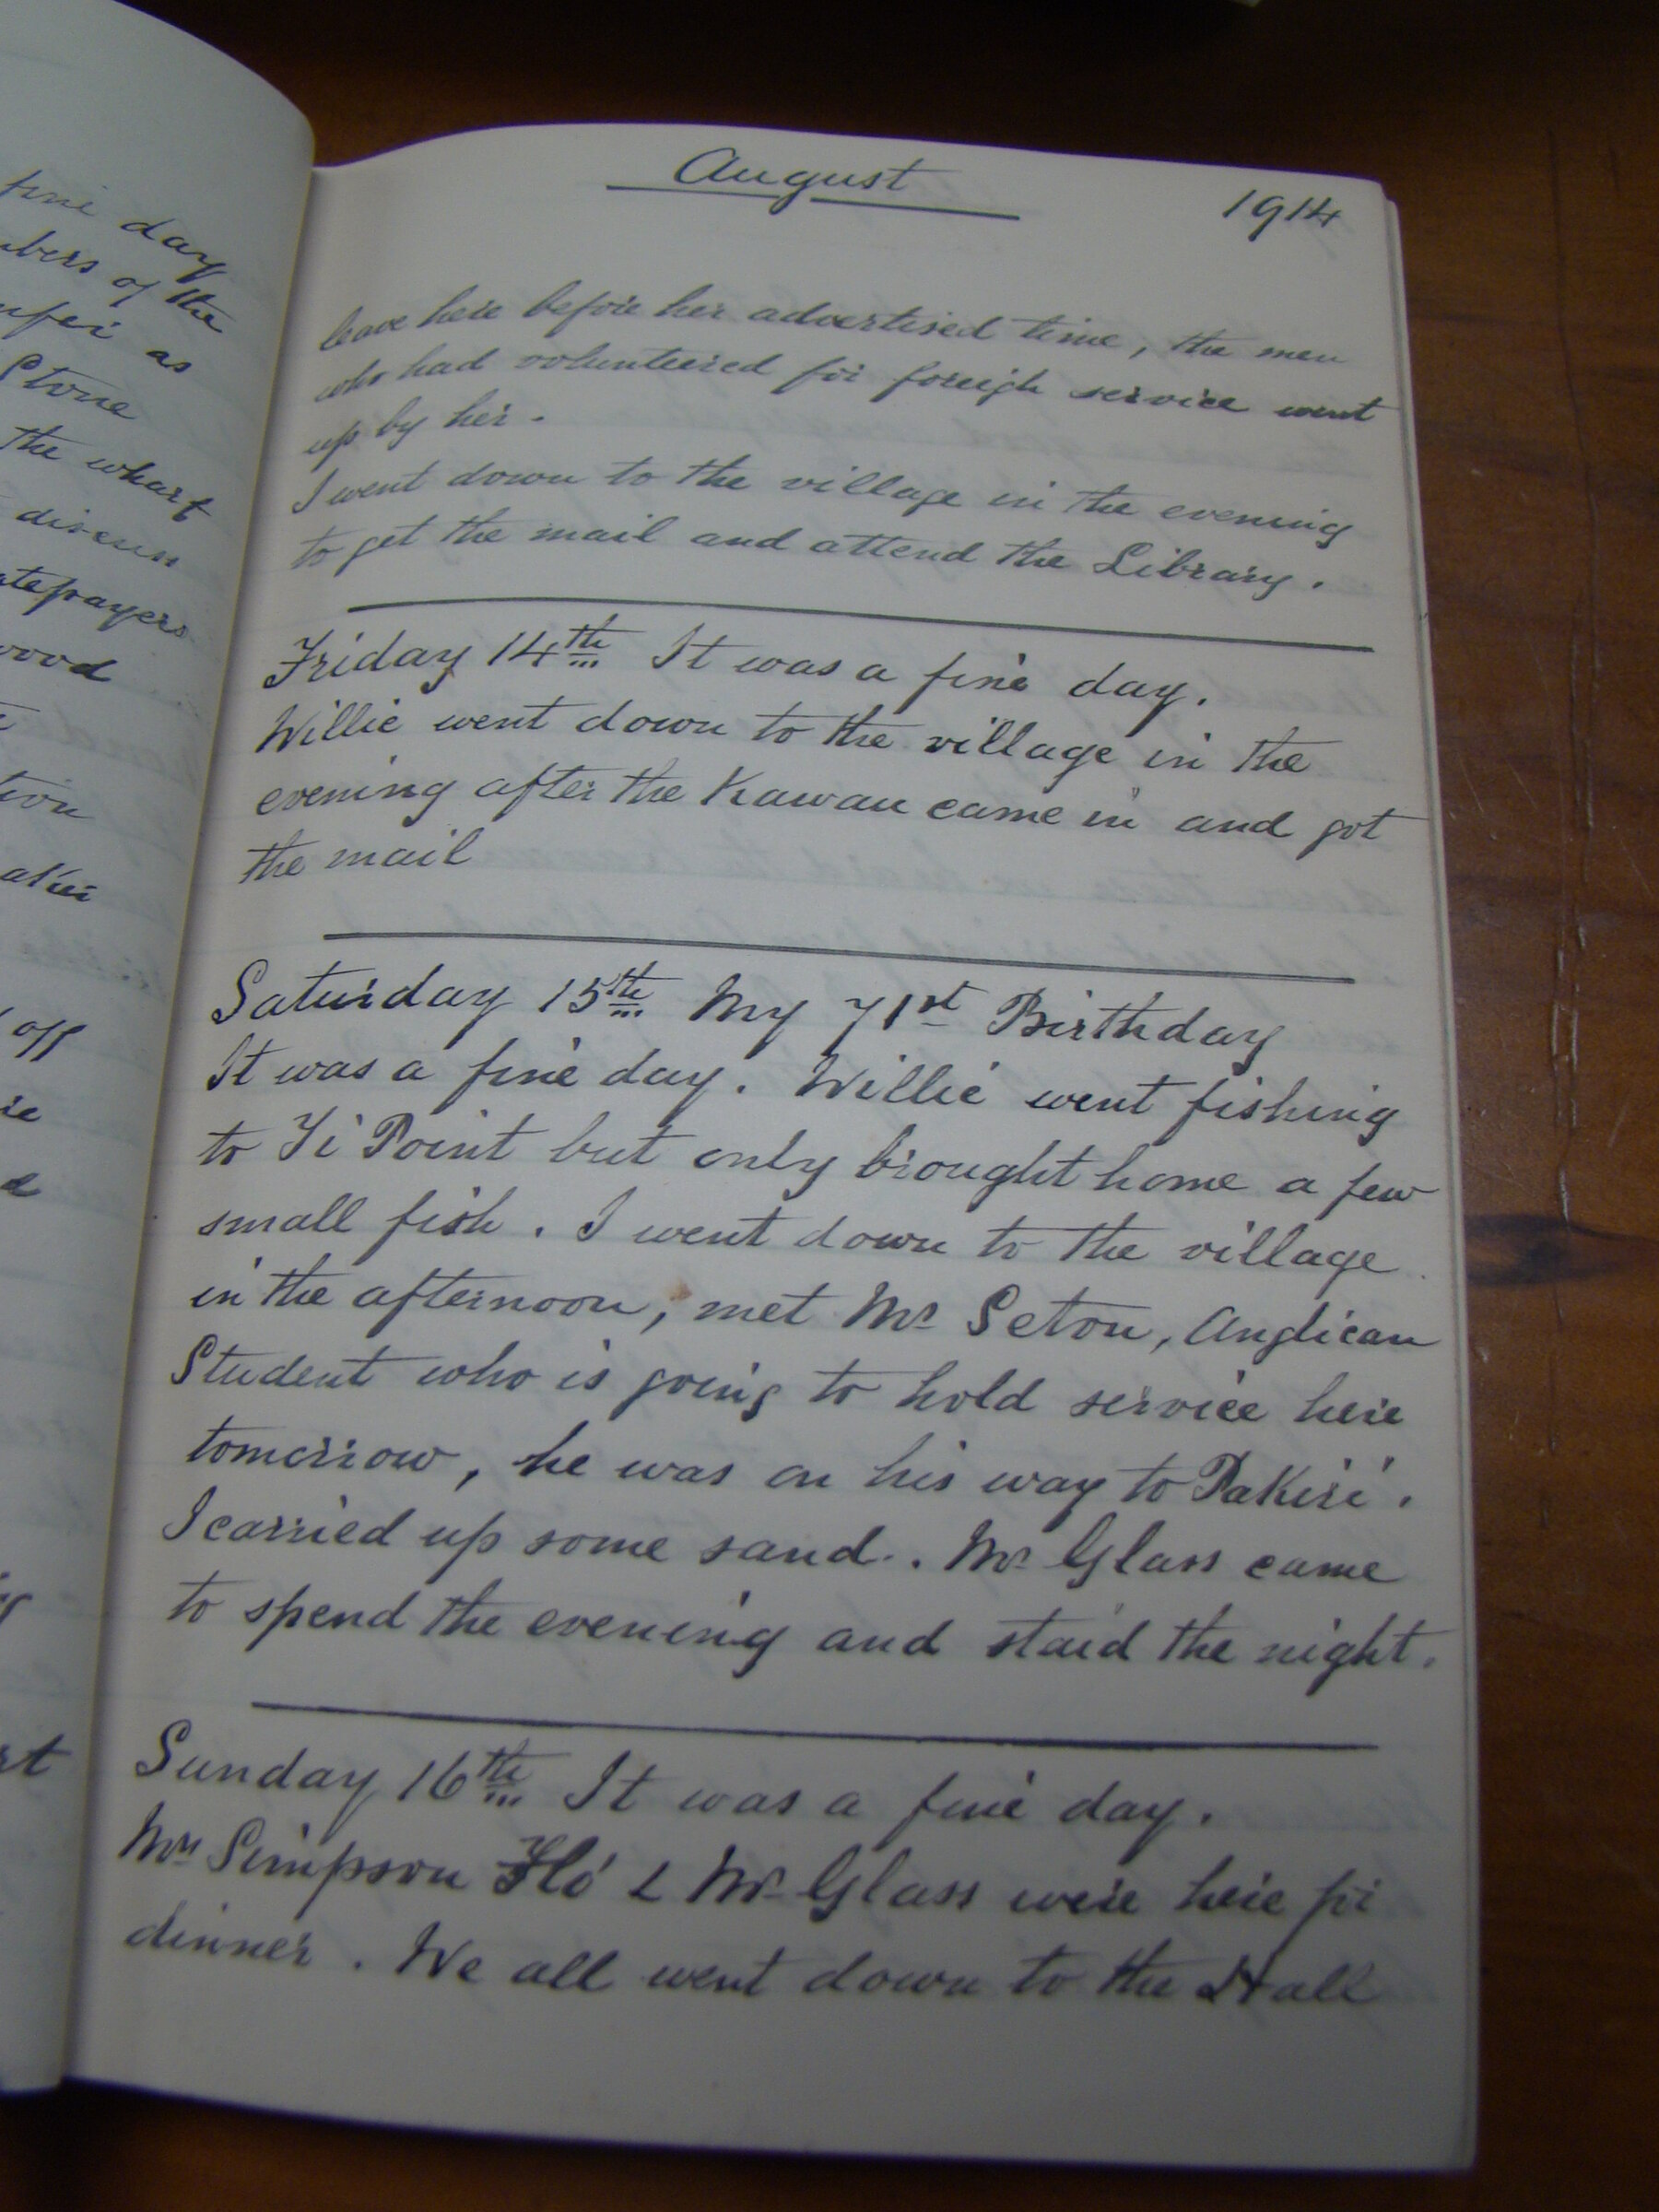 fine day
of the
as
Stone
the wharf
discuss
off
August
1914
leave here before her advertised time, the men
who had volunteered for foreign service went
up by her.
I went down to the village in the evening
to get the mail and attend the Library.
Friday 14th It was a fine day.
Willie went down to the village in the
evening after the Kawau came in and got
the mail
Saturday 15th My 71st Birthday
It was a fine day. Willie went fishing
to Ti Point but only brought home a few
small fish. I went down to the village
in the afternoon, met Mr Seton, Anglican
Student who is going to hold service here
tomorrow, he was on his way to Pakiri.
I carried up some sand. Mr Glass came
to spend the evening and staid the night.
Sunday 16th It was a fine day.
Mrs Simpson Flo & Mr Glass were here for
dinner. We all went down to the Hall